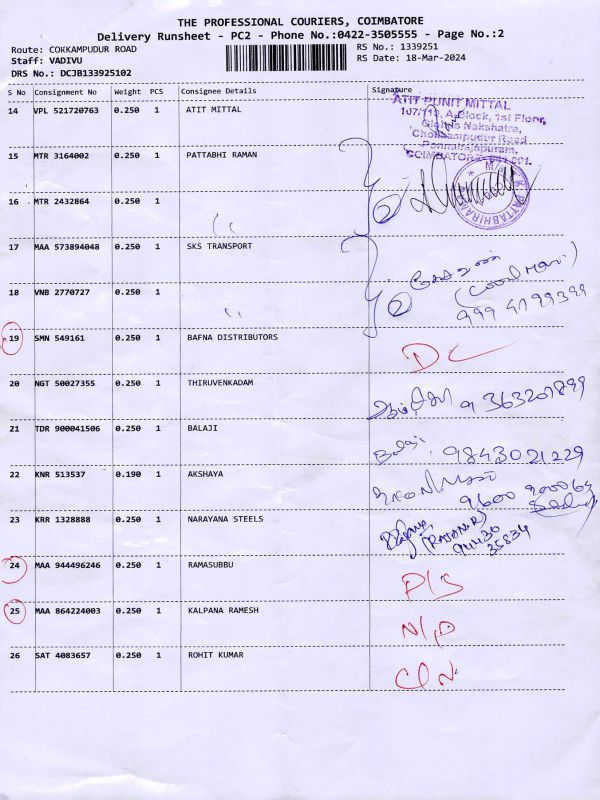 THE PROFESSIONAL COURIERS, COIMBATORE
Delivery Runsheet - PC2 - Phone No.:0422-3505555 - Page No.:2
Route: COKKAMPUDUR ROAD
RS No.: 1339251
Staff: VADIVU
RS Date: 18-Mar-2024
DRS No.: DCJB133925102
S No Consignment No Weight PCS Consignee Details Signature
14 VPL 521720763 0.250 1 ATIT MITTAL
ATIT PUNIT MITTAL
107/110, A-Block, 1st Floor,
Nakshatra,
Chokkampudur Road
Ponnaiahpuram,
COIMBATORE - 641 001.
15 MTR 3164002 0.250 1 PATTABHI RAMAN
16 MTR 2432864 0.250 1
2
17 MAA 573894048 0.250 1 SKS TRANSPORT
18 VNB 2770727 0.250 1
2
19 SMN 549161 0.250 1 BAFNA DISTRIBUTORS DC
20 NGT 50027355 0.250 1 THIRUVENKADAM
21 TDR 900041506 0.250 1 BALAJI Balaji 9843021229
22 KNR 513537 0.190 1 AKSHAYA
9600
23 KRR 1328888 0.250 1 NARAYANA STEELS
94430
35834
24 MAA 944496246 0.250 1 RAMASUBBU P/S
25 MAA 864224003 0.250 1 KALPANA RAMESH N/P
26 SAT 4083657 0.250 1 ROHIT KUMAR